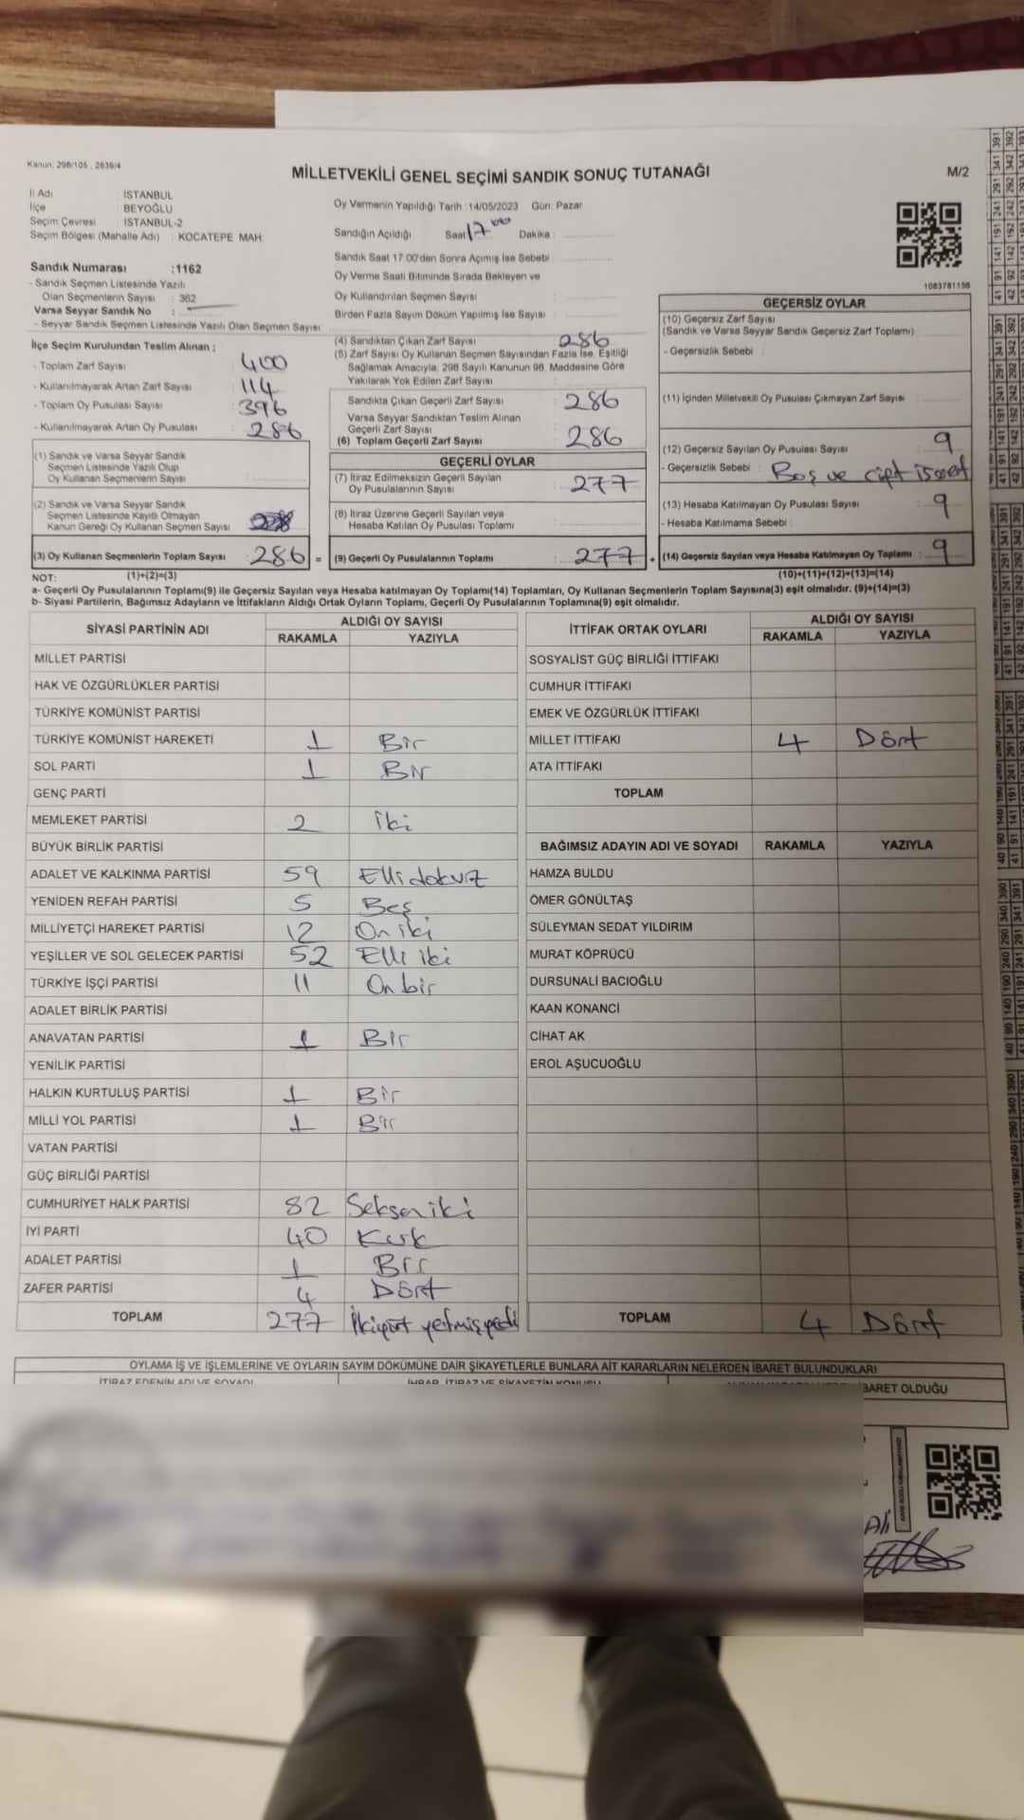 Kanun: 298/105 , 2839/4
MİLLETVEKİLİ GENEL SEÇİMİ SANDIK SONUÇ TUTANAĞI
M/2
İl Adı : İSTANBUL
İlçe : BEYOĞLU
Seçim Çevresi : İSTANBUL-2
Seçim Bölgesi (Mahalle Adı) : KOCATEPE MAH.
Sandık Numarası :1162
- Sandık Seçmen Listesinde Yazılı
Olan Seçmenlerin Sayısı : 382
Varsa Seyyar Sandık No :
- Seyyar Sandık Seçmen Listesinde Yazılı Olan Seçmen Sayısı
İlçe Seçim Kurulundan Teslim Alınan ;
- Toplam Zarf Sayısı 400
- Kullanılmayarak Artan Zarf Sayısı 114
- Toplam Oy Pusulası Sayısı 396
- Kullanılmayarak Artan Oy Pusulası 286
(1) Sandık ve Varsa Seyyar Sandık
Seçmen Listesinde Yazılı Olup
Oy Kullanan Seçmenlerin Sayısı
(2) Sandık ve Varsa Seyyar Sandık
Seçmen Listesinde Kayıtlı Olmayan
Kanun Gereği Oy Kullanan Seçmen Sayısı
(3) Oy Kullanan Seçmenlerin Toplam Sayısı 286 =
Oy Vermenin Yapıldığı Tarih :14/05/2023 Gün: Pazar
Sandığın Açıldığı Saat 17 00 Dakika :
Sandık Saat 17.00'den Sonra Açılmış İse Sebebi
Oy Verme Saati Bitiminde Sırada Bekleyen ve
Oy Kullandırılan Seçmen Sayısı :
Birden Fazla Sayım Döküm Yapılmış İse Sayısı
(4) Sandıktan Çıkan Zarf Sayısı 286
(5) Zarf Sayısı Oy Kullanan Seçmen Sayısından Fazla İse, Eşitliği
Sağlamak Amacıyla, 298 Sayılı Kanunun 98. Maddesine Göre
Yakılarak Yok Edilen Zarf Sayısı :
Sandıkta Çıkan Geçerli Zarf Sayısı : 286
Varsa Seyyar Sandıktan Teslim Alınan
Geçerli Zarf Sayısı
(6) Toplam Geçerli Zarf Sayısı : 286
GEÇERLİ OYLAR
(7) İtiraz Edilmeksizin Geçerli Sayılan
Oy Pusulalarının Sayısı : 277
(8) İtiraz Üzerine Geçerli Sayılan veya
Hesaba Katılan Oy Pusulası Toplamı :
(9) Geçerli Oy Pusulalarının Toplamı : 277 +
1083781158
GEÇERSİZ OYLAR
(10) Geçersiz Zarf Sayısı
(Sandık ve Varsa Seyyar Sandık Geçersiz Zarf Toplamı)
- Geçersizlik Sebebi :
(11) İçinden Milletvekili Oy Pusulası Çıkmayan Zarf Sayısı :
(12) Geçersiz Sayılan Oy Pusulası Sayısı : 9
- Geçersizlik Sebebi : Boş ve çift isaret
(13) Hesaba Katılmayan Oy Pusulası Sayısı : 9
- Hesaba Katılmama Sebebi :
(14) Geçersiz Sayılan veya Hesaba Katılmayan Oy Toplamı : 9
NOT: (1)+(2)=(3) (10)+(11)+(12)+(13)=(14)
a- Geçerli Oy Pusulalarının Toplamı(9) ile Geçersiz Sayılan veya Hesaba katılmayan Oy Toplamı(14) Toplamları, Oy Kullanan Seçmenlerin Toplam Sayısına(3) eşit olmalıdır. (9)+(14)=(3)
b- Siyasi Partilerin, Bağımsız Adayların ve İttifakların Aldığı Ortak Oyların Toplamı, Geçerli Oy Pusulalarının Toplamına(9) eşit olmalıdır.
SİYASİ PARTİNİN ADI ALDIĞI OY SAYISI
RAKAMLA YAZIYLA
MİLLET PARTİSİ
HAK VE ÖZGÜRLÜKLER PARTİSİ
TÜRKİYE KOMÜNİST PARTİSİ
TÜRKİYE KOMÜNİST HAREKETİ 1 Bir
SOL PARTİ 1 Bir
GENÇ PARTİ
MEMLEKET PARTİSİ 2 İki
BÜYÜK BİRLİK PARTİSİ
ADALET VE KALKINMA PARTİSİ 59 Elli dokuz
YENİDEN REFAH PARTİSİ 5 Beş
MİLLİYETÇİ HAREKET PARTİSİ 12 On iki
YEŞİLLER VE SOL GELECEK PARTİSİ 52 Elli iki
TÜRKİYE İŞÇİ PARTİSİ 11 On bir
ADALET BİRLİK PARTİSİ
ANAVATAN PARTİSİ 1 Bir
YENİLİK PARTİSİ
HALKIN KURTULUŞ PARTİSİ 1 Bir
MİLLİ YOL PARTİSİ 1 Bir
VATAN PARTİSİ
GÜÇ BİRLİĞİ PARTİSİ
CUMHURİYET HALK PARTİSİ 82 Seksen iki
İYİ PARTİ 40 Kırk
ADALET PARTİSİ 1 Bir
ZAFER PARTİSİ 4 Dört
TOPLAM 277 İkiyüz yetmiş yedi
İTTİFAK ORTAK OYLARI ALDIĞI OY SAYISI
RAKAMLA YAZIYLA
SOSYALİST GÜÇ BİRLİĞİ İTTİFAKI
CUMHUR İTTİFAKI
EMEK VE ÖZGÜRLÜK İTTİFAKI
MİLLET İTTİFAKI 4 Dört
ATA İTTİFAKI
TOPLAM
BAĞIMSIZ ADAYIN ADI VE SOYADI RAKAMLA YAZIYLA
HAMZA BULDU
ÖMER GÖNÜLTAŞ
SÜLEYMAN SEDAT YILDIRIM
MURAT KÖPRÜCÜ
DURSUNALİ BACIOĞLU
KAAN KONANCİ
CİHAT AK
EROL AŞUCUOĞLU
TOPLAM 4 Dört
OYLAMA İŞ VE İŞLEMLERİNE VE OYLARIN SAYIM DÖKÜMÜNE DAİR ŞİKAYETLERLE BUNLARA AİT KARARLARIN NELERDEN İBARET BULUNDUKLARI
İTİRAZ EDENİN ADI VE SOYADI
İHBAR, İTİRAZ VE ŞİKAYETİN KONUSU
İBARET OLDUĞU
Ali